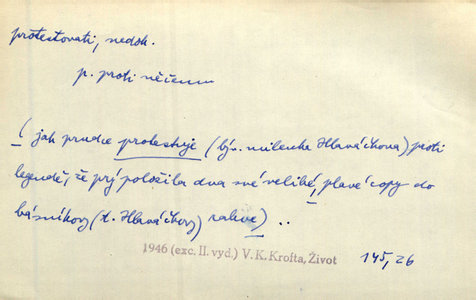 protestovati, nedok.
p. proti něčemu
( jak prudce protestuje (býv. milenka Hlaváčkova) proti
legendě, že prý položila dva své veliké, plavé copy do
básníkovy (t. Hlaváčkovy) rakve) ..
1946 (exc. II. vyd.) V. K. Krofta, Život 145, 26